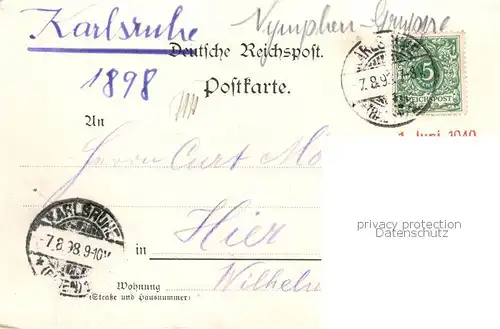 Karlsruhe Nymphen-Gruppe
Deutsche Reichspost.
1898
Postkarte.
KARLSRUHE
7.8.98
(BADEN)
5
REICHSPOST
1. Juni 1940
An
Herrn Curt
privacy protection
Datenschutz
KARLSRUHE
7.8.98.9-10V.
(BADEN)
in Hier
Wohnung
(Straße und Hausnummer)
Wilhelm